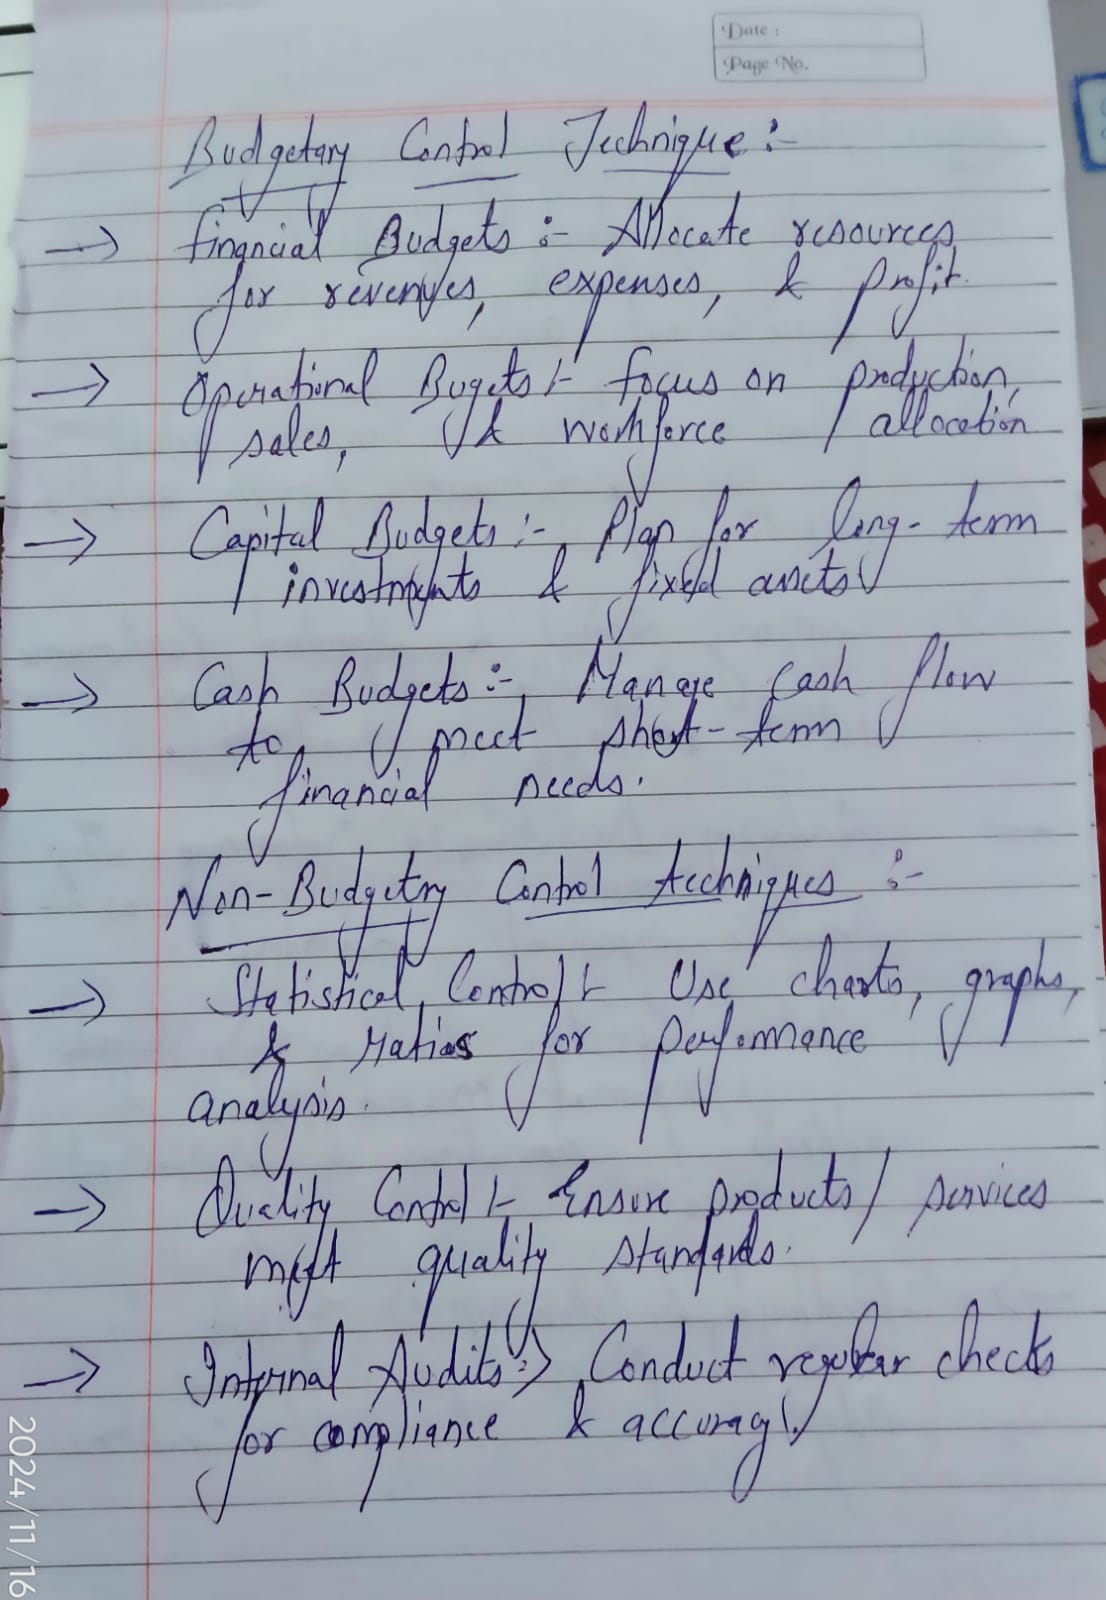 Date :
Page No.
Budgetary Control Technique :-
→ financial Budgets :- Allocate resources
for revenues, expenses, & profit.
→ Operational Bugets :- focus on production,
sales, & workforce allocation
→ Capital Budgets :- Plan for long-term
investments & fixed assets
→ Cash Budgets :- Manage cash flow
to meet short-term
financial needs.
Non-Budgetry Control techniques :-
→ Statistical Control :- Use charts, graphs,
& ratios for performance
analysis.
→ Quality Control :- Ensure products/ services
meet quality standards.
→ Internal Audits :- Conduct regular checks
for compliance & accuracy.
2024/11/16